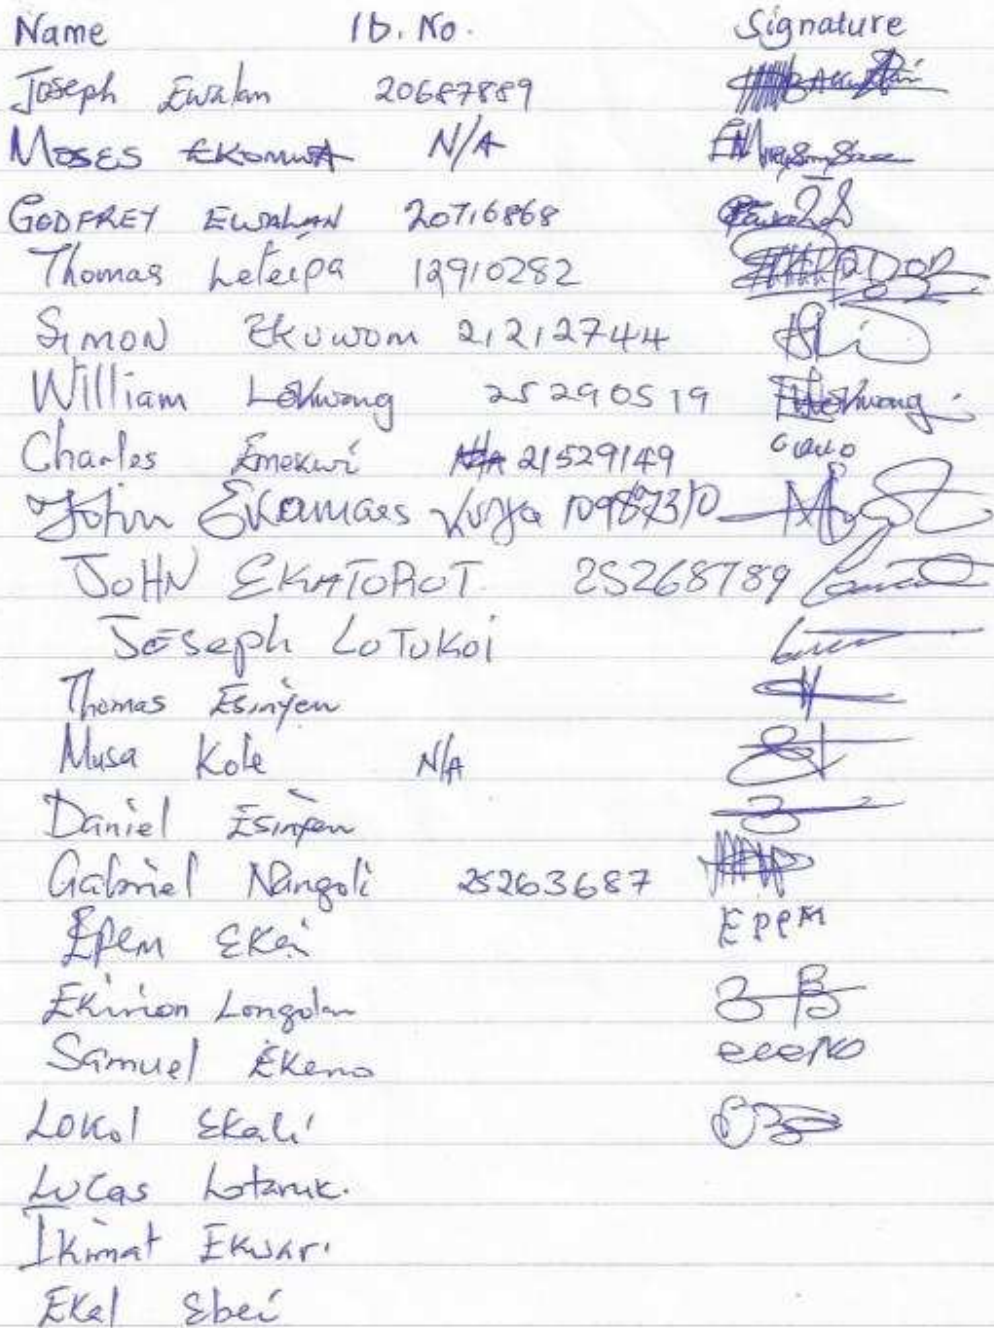 Name ID. No. Signature
Joseph Ewalan 20687889
Moses Ekomwa N/A
GODFREY EWALAN 20716868
Thomas Leteipa 12910282
SIMON EKUWOM 21212744
William Lokwang 25290519 Lokwang
Charles Emekwi N/A 21529149
John Ekamaes 10987310
JOHN EKATOROT 25268789
Joseph LOTUKOI
Thomas Esinyen
Musa Kole N/A
Daniel Esinyen
Gabriel Nangoli 25263687
Epem Ekai EPPM
Ekirion Longolan
Samuel Ekeno
Lokol Ekali
Lucas Lotaruk.
Ikimat Ekwari
Ekal Ebei